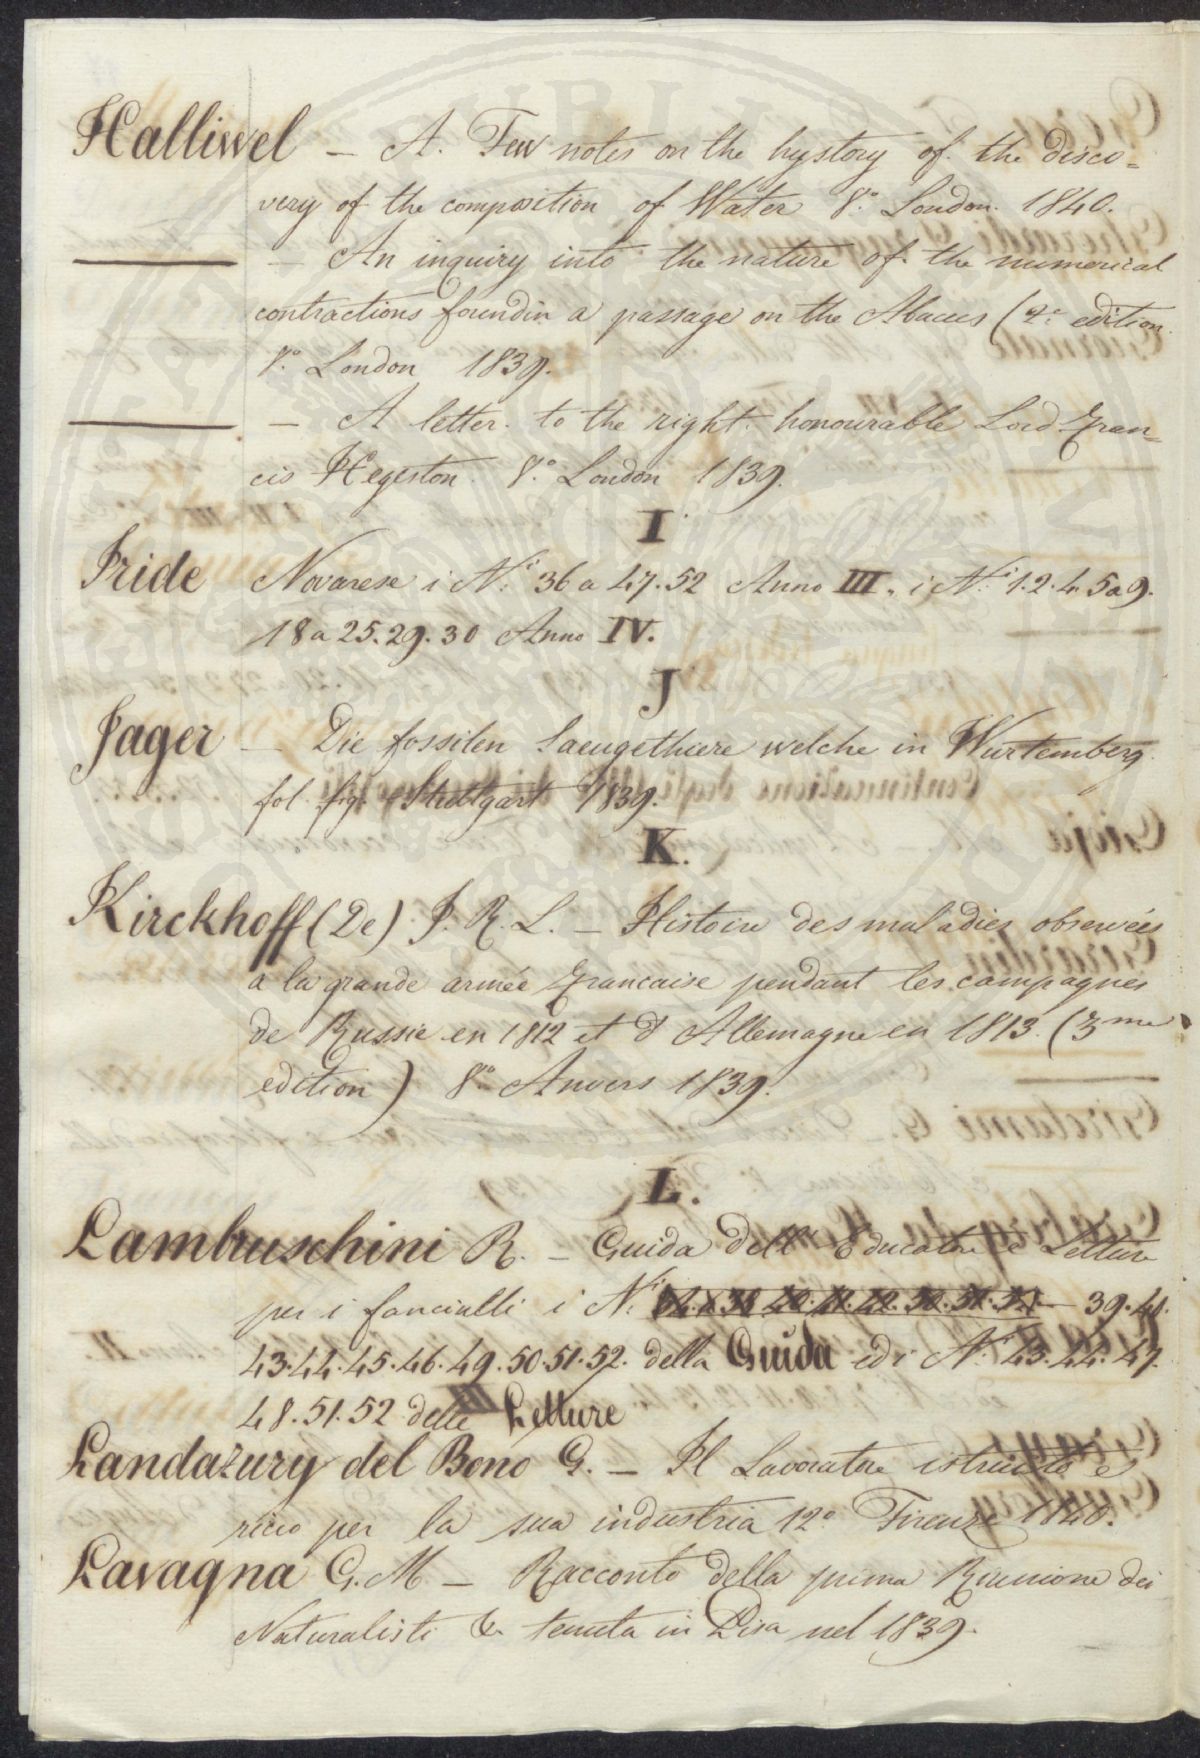 Halliwel – A. Few notes on the hystory of the disco=
very of the composition of Water 8.° London. 1840.
– An inquiry into the nature of the numerical
contractions foundin a passage on the Abacus (2.e edition
8.° London 1839.
– A letter to the right honourable Lord Fran=
cis Hegerton. 8.° London 1839.
I
Iride Novarese i N.i 36 a 47.52 Anno III. i N.i 1.2.4.5a9.
18 a 25.29.30 Anno IV.
J
Jager – Die fossilen Saeugethiere welche in Wurtemberg.
fol. fig. Stuttgart 1839.
K.
Kirckhoff (De) J. R. L. – Histoire des maladies observées
a la grande armée Francaise pendant les campagnes
de Russie en 1812 et d Allemagne en 1813. (3me
edition) 8.° Anvers 1839.
L.
Lambruschini R. – Guida dell' Educatore e Letture
per i fanciulli i N.i 39.40.
43.44.45.46.49.50.51.52. della Guida ed i N.i 43.44.47.
48.51.52 delle Letture
Landazury del Bono G. – Il Lavoratore istruito e
ricco per la sua industria 12.° Firenze 1840.
Lavagna G. M – Racconto della prima Riunione dei
Naturalisti &c tenuta in Pisa nel 1839.